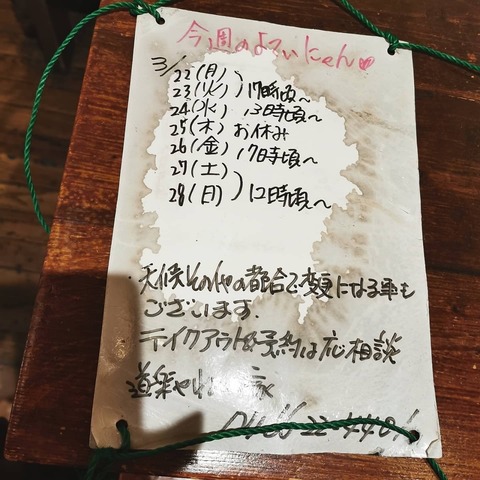 今週のよていにゃん♥
3/
22(月)
23(火) 17時頃〜
24(水) 13時頃〜
25(木) お休み
26(金) 17時頃〜
27(土)
28(日) 12時頃〜
・天候その他の都合で変更になる事も
ございます.
テイクアウト&予約は応相談
道楽
家